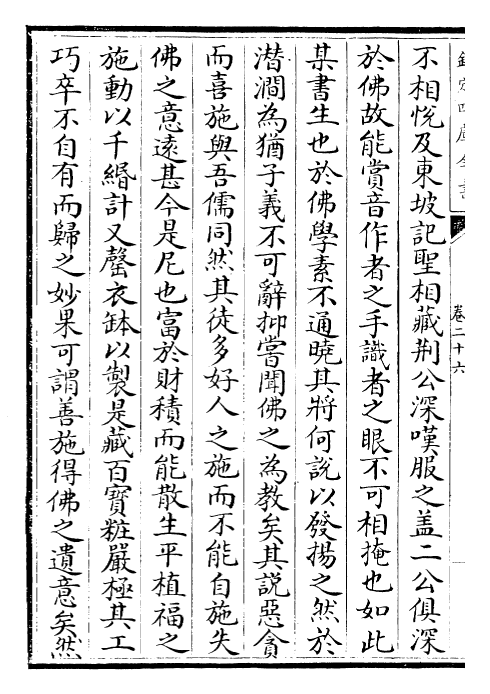 欽定四庫全書
卷二十六
不相悅及東坡記聖相藏荆公深嘆服之盖二公俱深
於佛故能賞音作者之手識者之眼不可相掩也如此
某書生也於佛學素不通曉其將何說以發揚之然於
潛澗為猶子義不可辭抑嘗聞佛之為教矣其説惡貪
而喜施與吾儒同然其徒多好人之施而不能自施失
佛之意遠甚今是尼也富於財積而能散生平植福之
施動以千緡計又罄衣缽以製是藏百寳粧嚴極其工
巧卒不自有而歸之妙果可謂善施得佛之遺意矣然